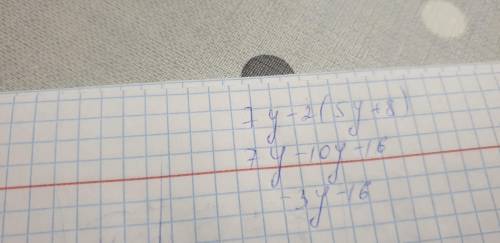 7y-2(5y+8)
7y-10y-16
-3y-16